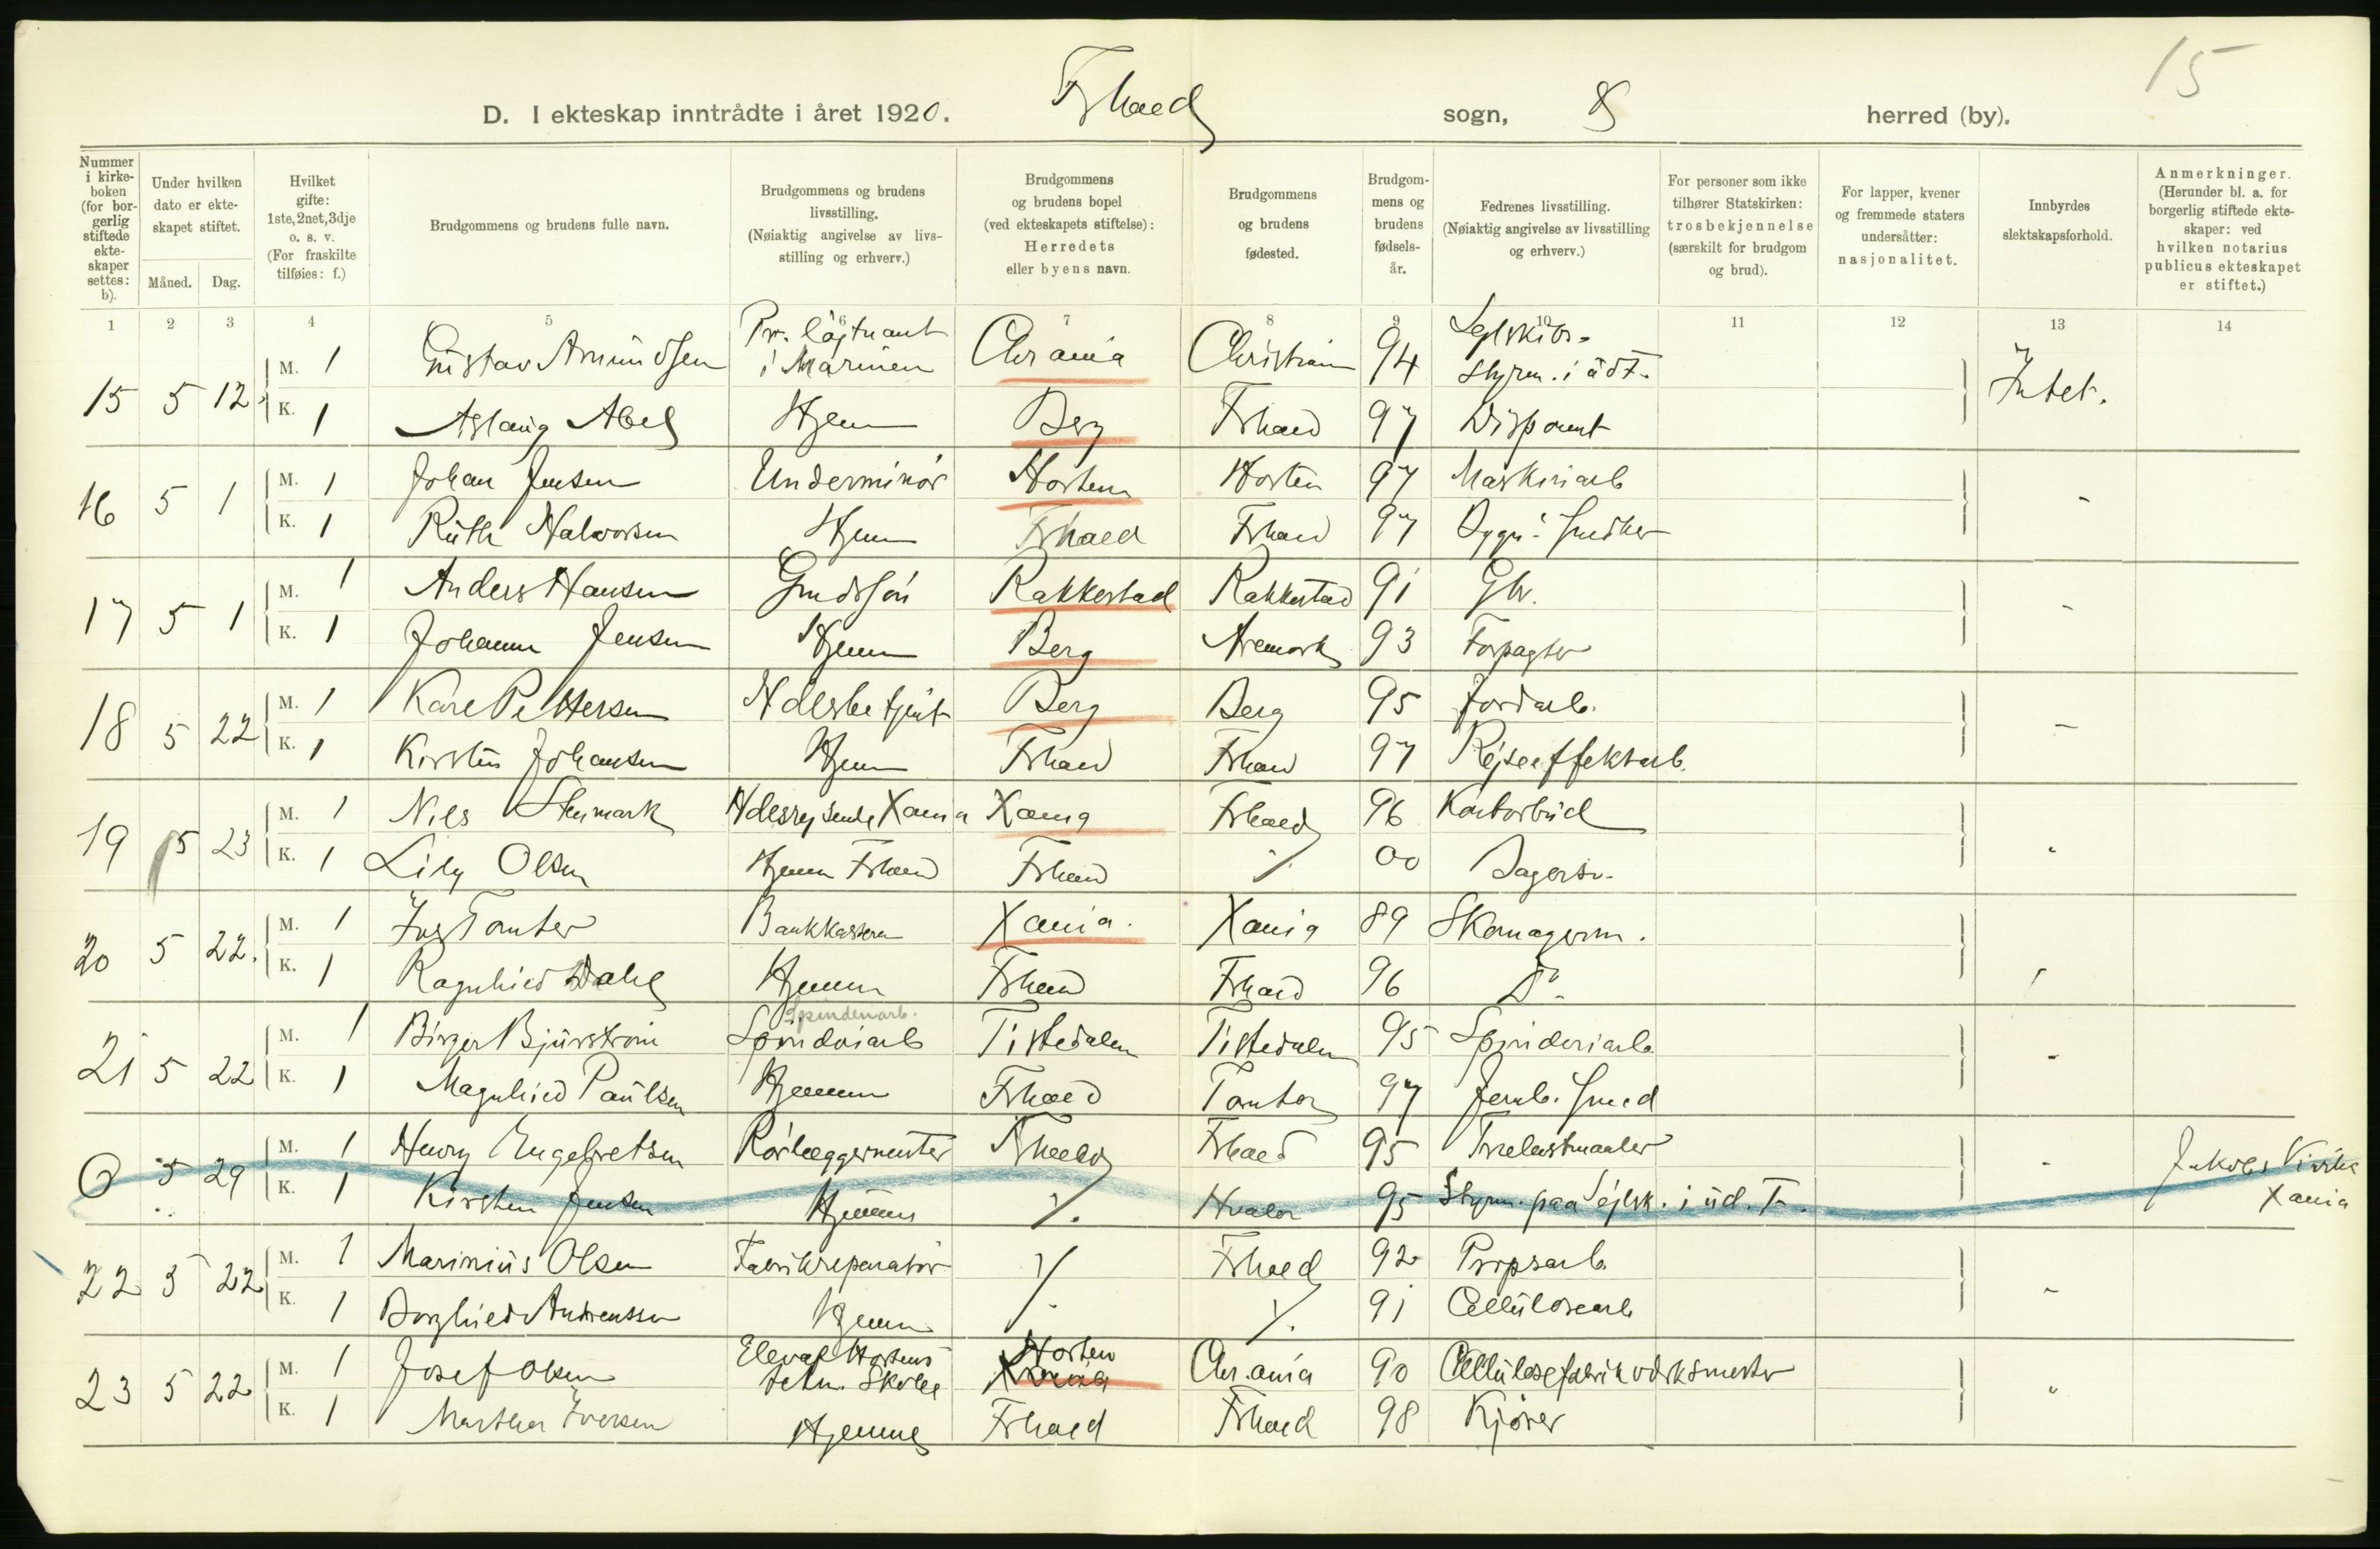 15
D. I ekteskap inntrådte i året 1920. Frhald sogn, herred (by).
Nummer i kirkeboken (for borgerlig stiftede ekteskaper settes: b).
Under hvilken dato er ekteskapet stiftet.
Måned. Dag.
Hvilket gifte: 1ste, 2net, 3dje o. s. v. (For fraskilte tilføies: f.)
Brudgommens og brudens fulle navn.
Brudgommens og brudens livsstilling. (Nøiaktig angivelse av livsstilling og erhverv.)
Brudgommens og brudens bopel (ved ekteskapets stiftelse): Herredets eller byens navn.
Brudgommens og brudens fødested.
Brudgommens og brudens fødselsår.
Fedrenes livsstilling. (Nøiaktig angivelse av livsstilling og erhverv.)
For personer som ikke tilhører Statskirken: trosbekjennelse (særskilt for brudgom og brud).
For lapper, kvener og fremmede staters undersåtter: nasjonalitet.
Innbyrdes slektskapsforhold.
Anmerkninger. (Herunder bl. a. for borgerlig stiftede ekteskaper: ved hvilken notarius publicus ekteskapet er stiftet.)
1 2 3 4 5 6 7 8 9 10 11 12 13 14
15 5 12 M. 1 Gustav Amundsen Pr. löjtnant i Marinen Chrania Christiania 94 Sejlskibs- styrm. i udf. Intet.
K. 1 Aslaug Abel Hjem Berg Frhald 97 Disponent
16 5 1 M. 1 Johan Jensen Underminör Horten Horten 97 Maskinarb -
K. 1 Ruth Halvorsen Hjem Frhald Frhald 97 Bygn. Snedker
17 5 1 M. 1 Anders Hansen Grdssön Rakkestad Rakkestad 91 Gbr. -
K. 1 Johanne Jensen Hjem Berg Aremark 93 Forpagter
18 5 22 M. 1 Kåre Pettersen Hdlsbetjent Berg Berg 95 Jordarb. -
K. 1 Kirsten Johansen Hjem Frhald Frhald 97 Rejseeffektarb.
19 5 23 M. 1 Nils Stenmark Hdlsrejsende Xania Xania Frhald 96 Kontorbud
K. 1 Lily Olsen Hjem Frhald Frhald ٪ 00 Dagarb.
20 5 22. M. 1 Ivar Tomter Bankkasserer Xania. Xania 89 Skomagerm.
K. 1 Ragnhild Dahl Hjemme Frhald Frhald 96 Do.
Spinderiarb.
21 5 22 M. 1 Birger Bjurström Spinderiarb Tistedalen Tistedalen 95 Spinderiarb. -
K. 1 Magnhild Paulsen Hjemme Frhald Tomter 97 Jernb. Smed
0 5 29 M. 1 Henry Engebretsen Rörlæggermester Frhald Frhald 95 Trælastmaaler - Jakobs Kirke
K. 1 Kirsten Jensen Hjemme ٪ Hvaler 95 Styrm. paa Sejlsk. i ud. F. Xania
22 5 22 M. 1 Marinius Olsen Fabrikreparatör ٪ Frhald 92 Propsarb. -
K. 1 Borghild Andreassen Hjemme ٪ 91 Cellulosearb
23 5 22 M. 1 Josef Olsen Elev af Hortens tekn. Skole Horten Xania Chr.ania 90 Cellulosefabrikverksmester
K. 1 Martha Iversen Hjemme Frhald Frhald 98 Kjörer